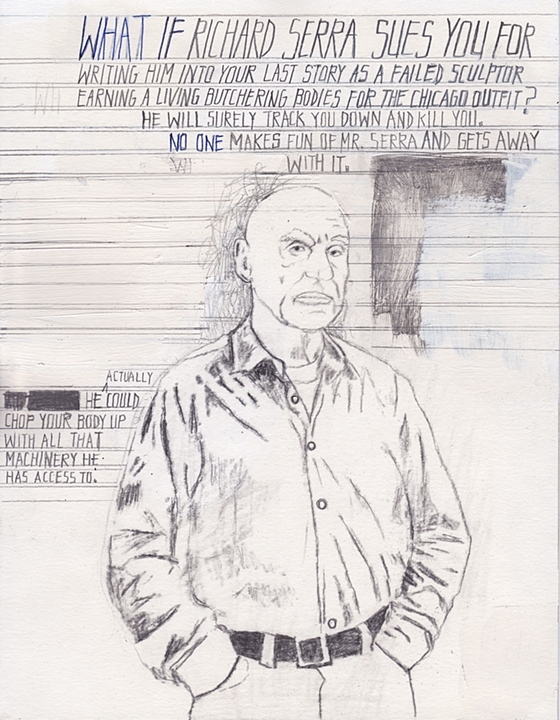 WHAT IF RICHARD SERRA SUES YOU FOR
WRITING HIM INTO YOUR LAST STORY AS A FAILED SCULPTOR
EARNING A LIVING BUTCHERING BODIES FOR THE CHICAGO OUTFIT?
HE WILL SURELY TRACK YOU DOWN AND KILL YOU.
NO ONE MAKES FUN OF MR. SERRA AND GETS AWAY
WITH IT.
ACTUALLY
HE COULD
CHOP YOUR BODY UP
WITH ALL THAT
MACHINERY HE
HAS ACCESS TO.